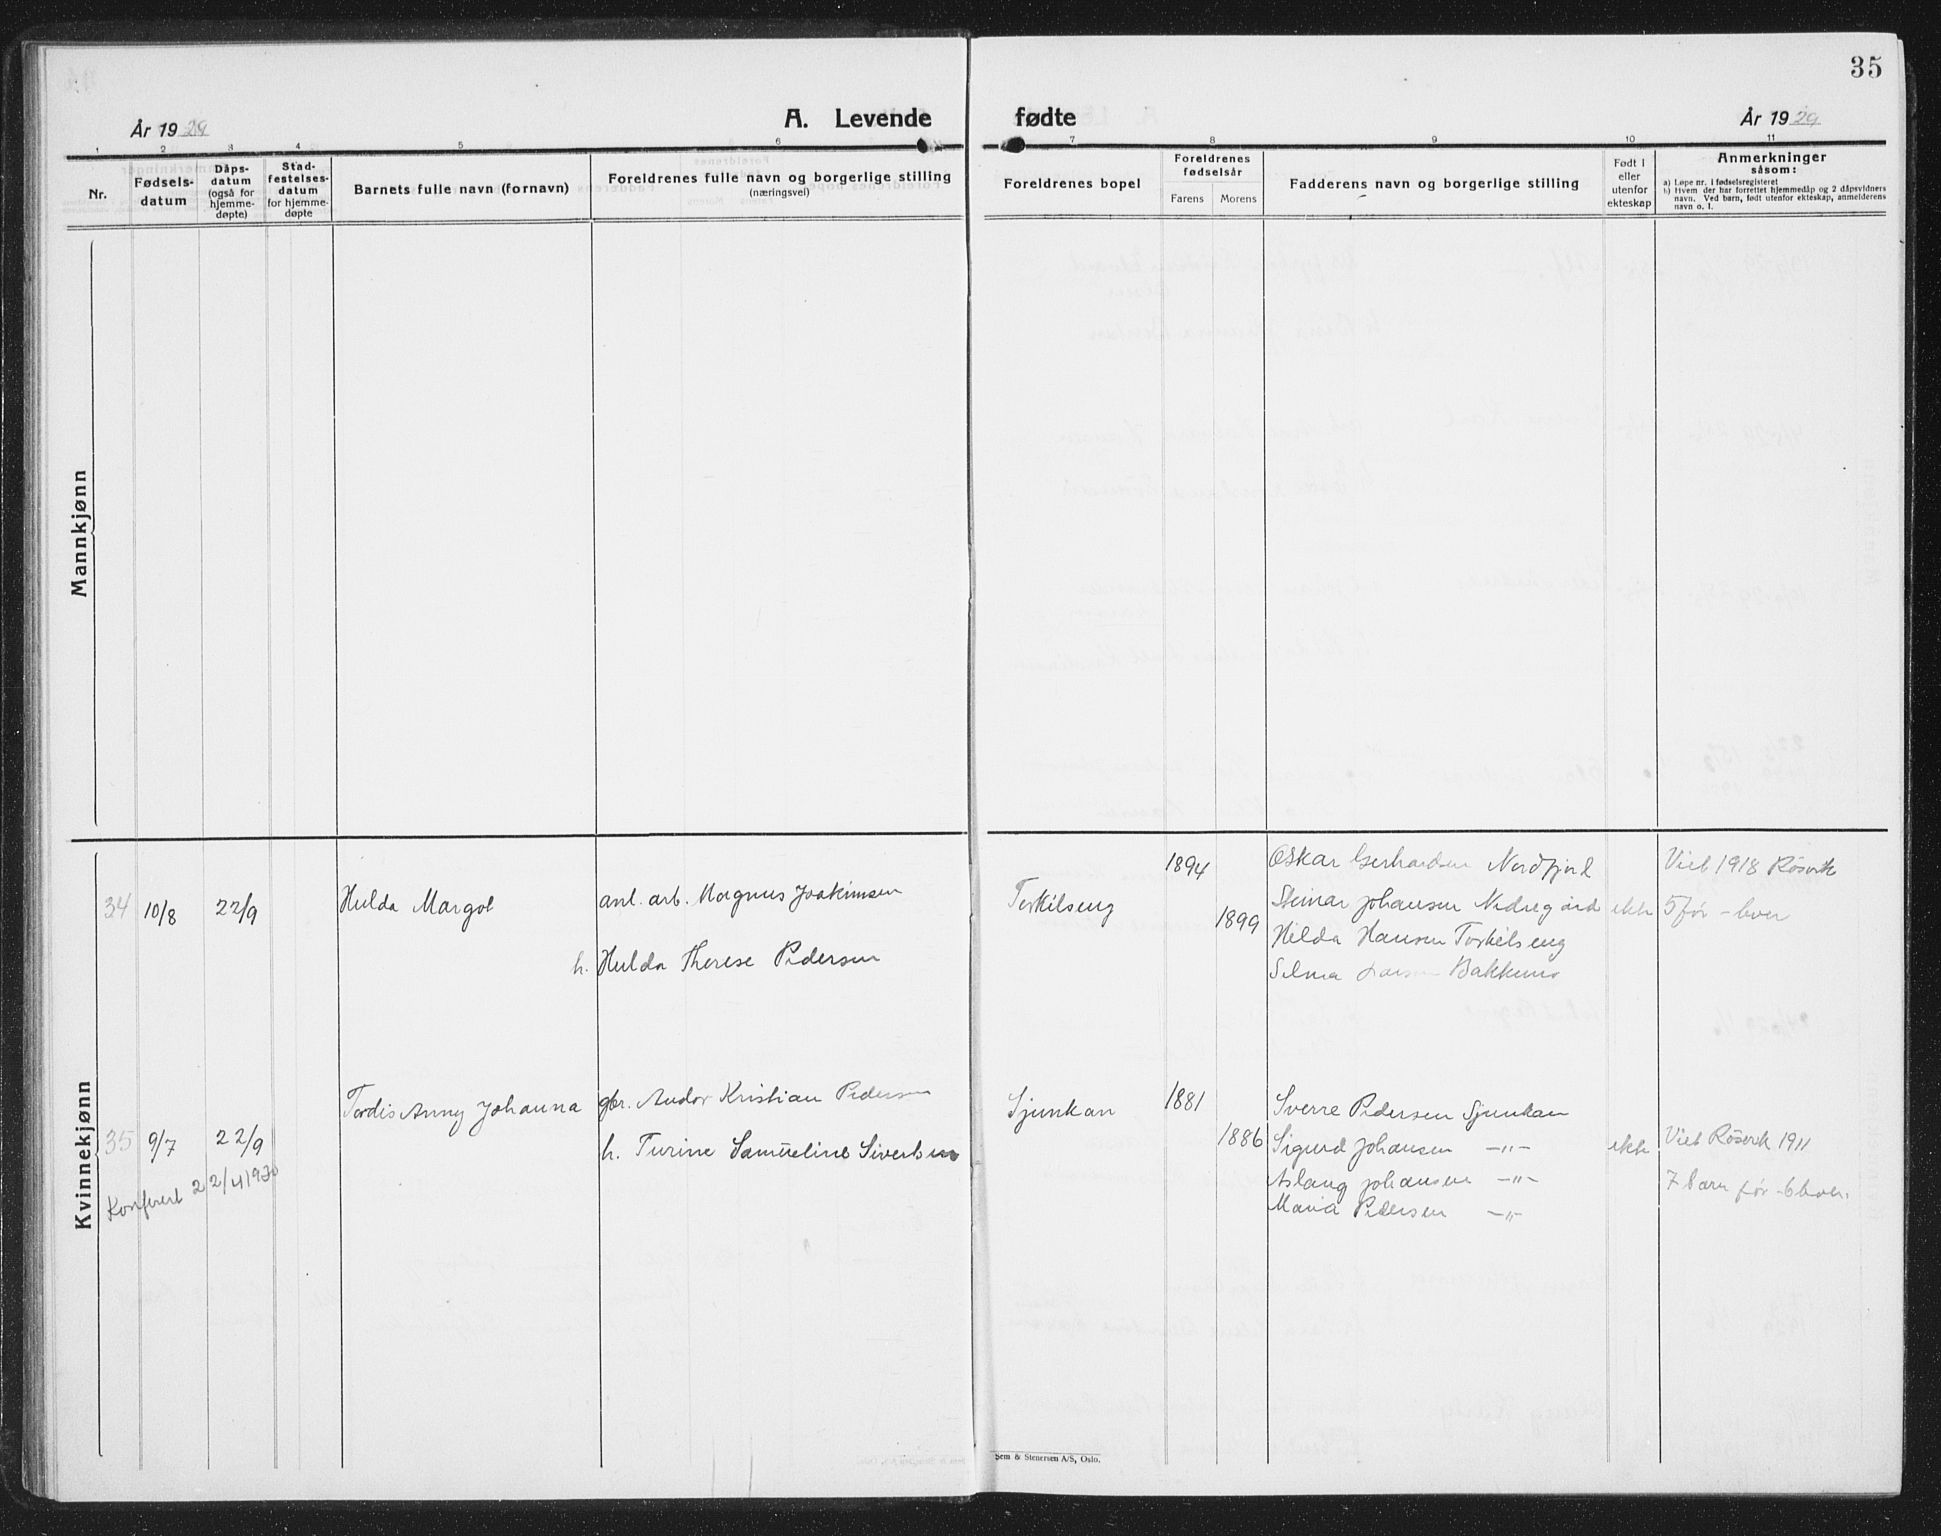 35
År 1929
A. Levende
fødte
År 1929
1 2 3 4 5 6 7 8 9 10 11
Nr.
Fødsels-
datum
Dåps-
datum
(også for
hjemme-
døpte)
Stad-
festelses-
datum
for hjemme-
døpte
Barnets fulle navn (fornavn)
Foreldrenes fulle navn og borgerlige stilling
(næringsvei)
Foreldrenes bopel
Foreldrenes
fødselsår
Farens
Morens
Fadderens navn og borgerlige stilling
Født i
eller
utenfor
ekteskap
Anmerkninger
såsom:
a) Løpe nr. i fødselsregisteret
b) Hvem der har forrettet hjemmedåp og 2 dåpsvidners
navn. Ved barn, født utenfor ekteskap, anmelderens
navn o. l.
Mannkjønn
Kvinnekjønn
34 10/8 22/9 Hulda Margot anl. arb. Magnus Joakimsen
h. Hulda Therese Pedersen
Torkilseng 1894 1899
Oskar Gerhardsen Nordfjord
Steinar Johansen Nedregård
Hilda Hansen Torkilseng
Selma Larsen Bakkemo
ekte
Viet 1918 Røsvik
5 før - lever
35 9/7 22/9 Tordis Anny Johanna gbr. Andor Kristian Pedersen
h. Turine Samueline Sivertsen
Konferert 22/4 1970
Sjunkan 1881 1886
Sverre Pedersen Sjunkan
Sigurd Johansen -"-
Aslaug Johansen -"-
Maria Pedersen -"-
ekte
Viet Røsvik 1911
7 barn før - 6 lever.
Sem & Stenersen A/S, Oslo.